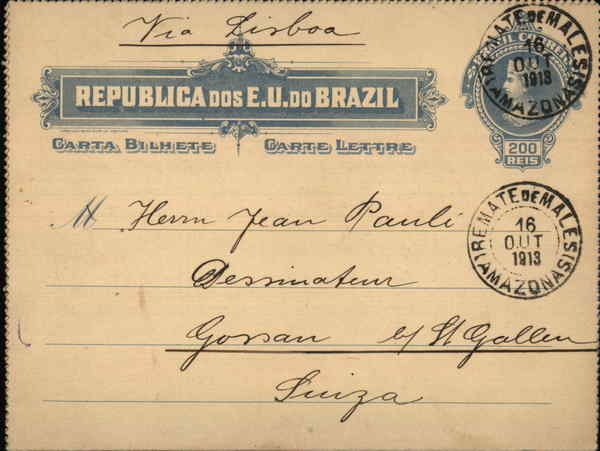 Via Lisboa
REPUBLICA DOS E.U. DO BRAZIL
CARTA BILHETE CARTE LETTRE
200
REIS
REMATE DE MALES
16
OUT
1913
(AMAZONAS)
Herrn Jean Pauli
Dessinateur
Gossau b/ St Gallen
Suiza
REMATE DE MALES
16
OUT
1913
(AMAZONAS)